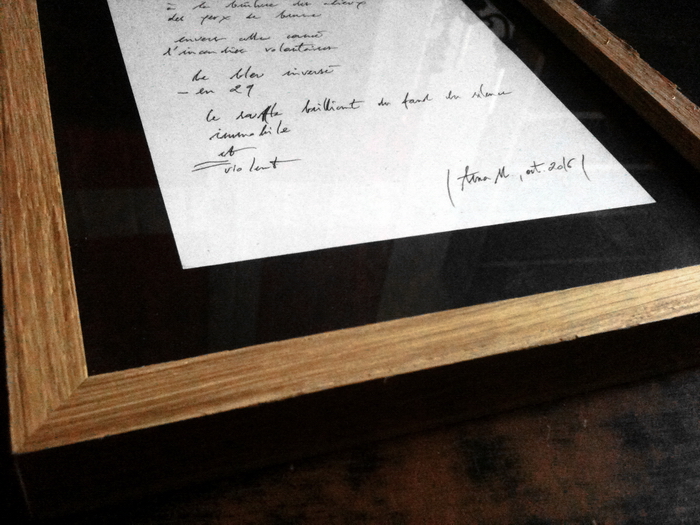 à la brûlure des
des yeux de braise
envers elle
l'incendiee volontaire
de bleu inversé
— en 29
le souffle brillant du fond du silence
immobile
et
violent
(Anna M., oct. 2016)